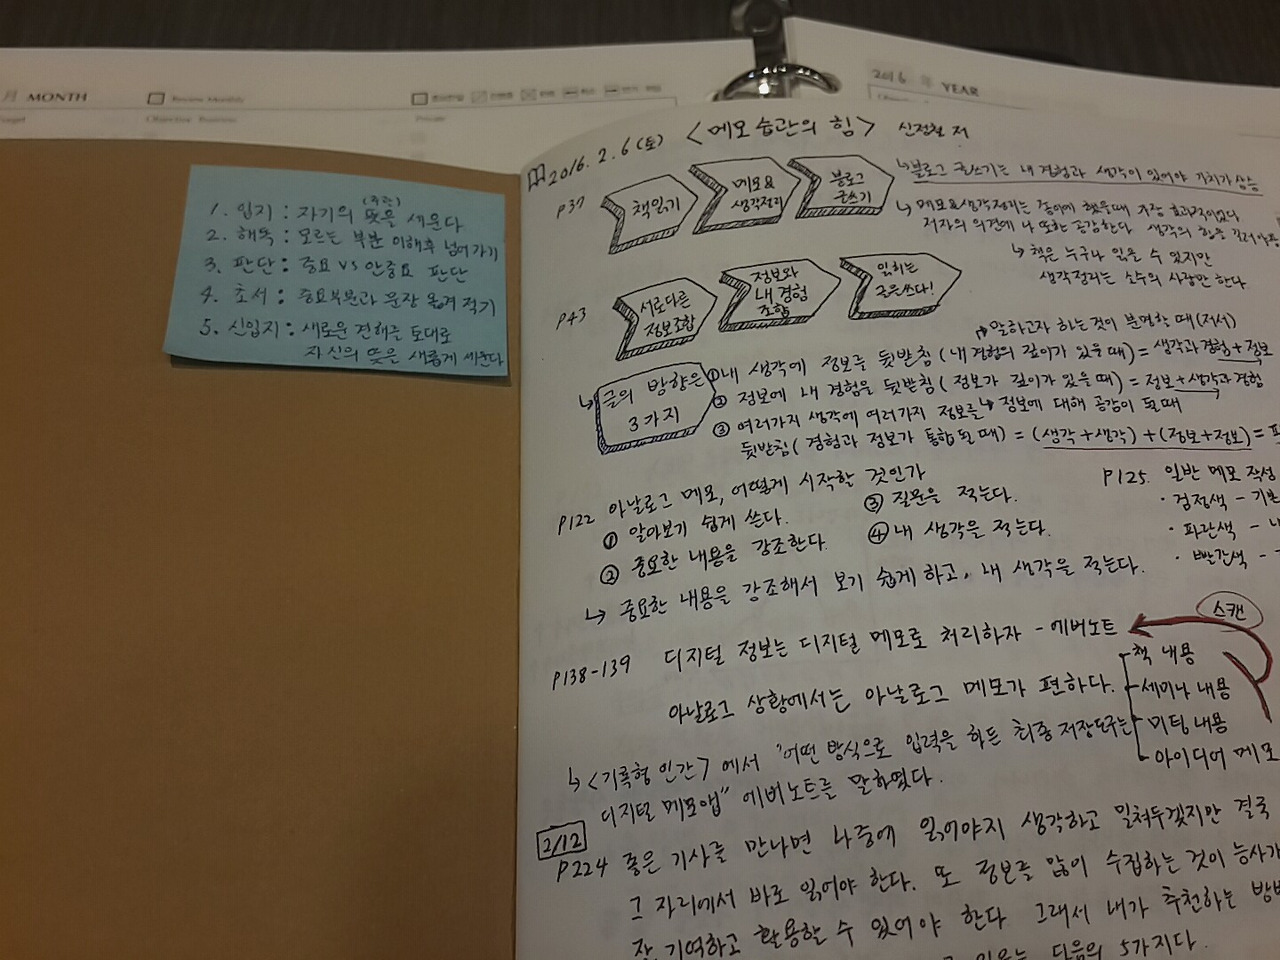 月 MONTH
Review Monthly
Objective Business
Private
2016 年 YEAR
1. 입지 : 자기의 (주관) 뜻을 세운다
2. 해독 : 모르는 부분 이해후 넘어가기
3. 판단 : 중요 VS 안중요 판단
4. 초서 : 중요부분과 문장 옮겨 적기
5. 신입지 : 새로운 견해를 토대로
자신의 뜻은 새롭게 세운다
2016. 2. 6 (토) <메모 습관의 힘> 신정철 저
P37
책읽기
메모&
생각정리
블로그
글쓰기
↳ 블로그 글쓰기는 내 경험과 생각이 있어야 가치가 상승
↳ 메모&생각정리는 종이에 했을때 가장 효과적이었다
저자의 의견에 나 또한 공감한다. 생각의 힘을 길러야
↳ 책은 누구나 읽을 수 있지만
생각정리는 소수의 사람만 한다.
P43
서로다른
정보조합
정보와
내 경험
조합
읽히는
글을쓰다!
↱ 말하고자 하는것이 분명할 때 (저서)
↳ 글의 방향은
3가지
① 내 생각에 정보를 뒷받침 (내 경험의 깊이가 있을 때) = 생각과경험+정보
② 정보에 내 경험을 뒷받침 (정보가 깊이가 있을 때) = 정보+생각과경험
↳ 정보에 대해 공감이 될때
③ 여러가지 생각에 여러가지 정보를
뒷받침 (경험과 정보가 통합될 때) = (생각+생각) + (정보+정보) =
P122 아날로그 메모, 어떻게 시작할 것인가
① 알아보기 쉽게 쓴다.
② 중요한 내용을 강조한다.
③ 질문을 적는다.
④ 내 생각을 적는다.
↳ 중요한 내용을 강조해서 보기 쉽게하고, 내 생각을 적는다.
P125. 일반 메모 작성
· 검정색 - 기본
· 파란색 -
· 빨간색 -
P138-139 디지털 정보는 디지털 메모로 처리하자 - 에버노트
스캔
아날로그 상황에서는 아날로그 메모가 편하다.
책 내용
세미나 내용
미팅 내용
아이디어 메모
↳ <기록형 인간> 에서 "어떤 방식으로 입력을 하든 최종 저장도구는
디지털 메모앱" 에버노트를 말하였다.
2/12
P224 좋은 기사를 만나면 나중에 읽어야지 생각하고 밀쳐두겠지만 결국
그 자리에서 바로 읽어야 한다. 또 정보를 많이 수집하는 것이 능사가
잘 기억하고 활용할 수 있어야 한다 그래서 내가 추천하는 방법
다음의 5가지다.